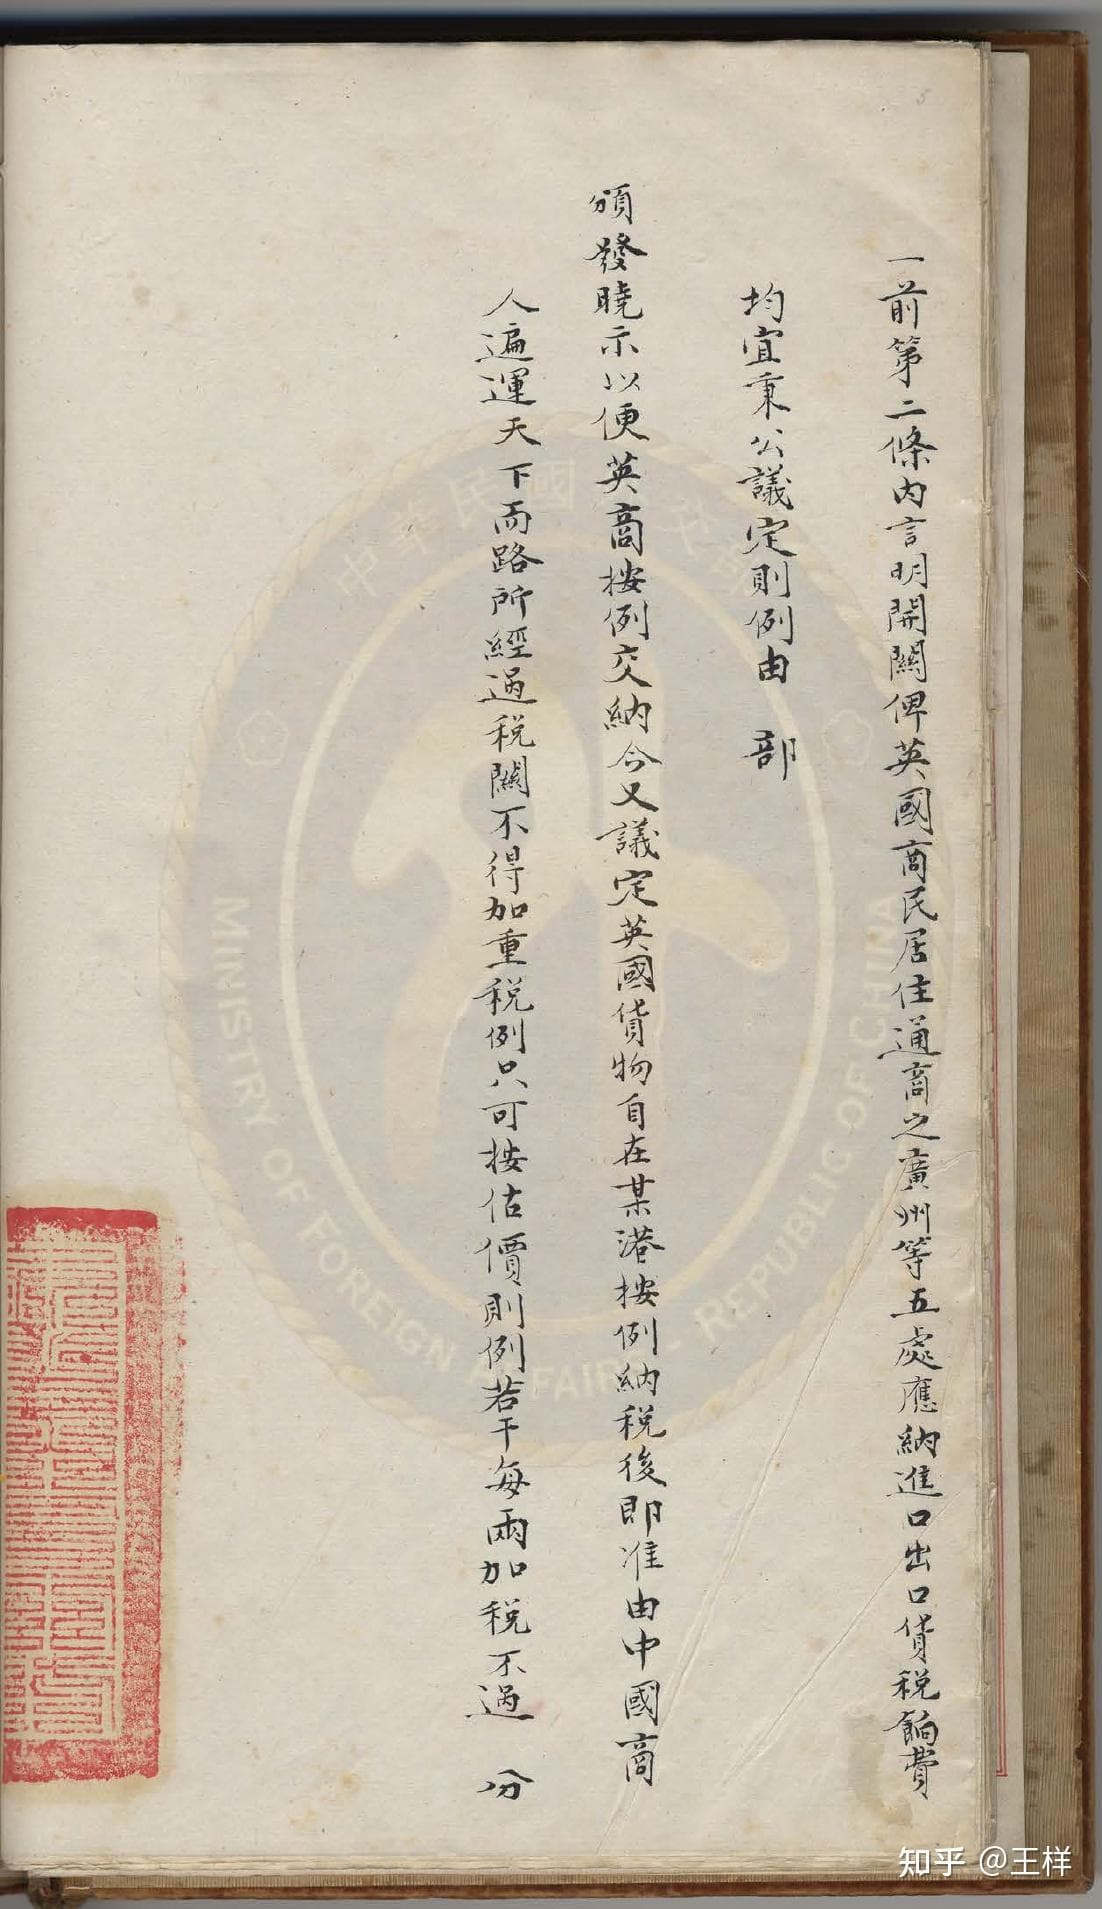 5
一前第二條內言明開關俾英國商民居住通商之廣州等五處應納進口出口貨稅餉費
均宜秉公議定則例由 部
頒發曉示以便英商按例交納今又議定英國貨物自在某港按例納稅後即准由中國商
人遍運天下而路所經過稅關不得加重稅例只可按估價則例若干每兩加稅不過 分
MINISTRY OF FOREIGN AFFAIRS REPUBLIC OF CHINA
知乎 @王样